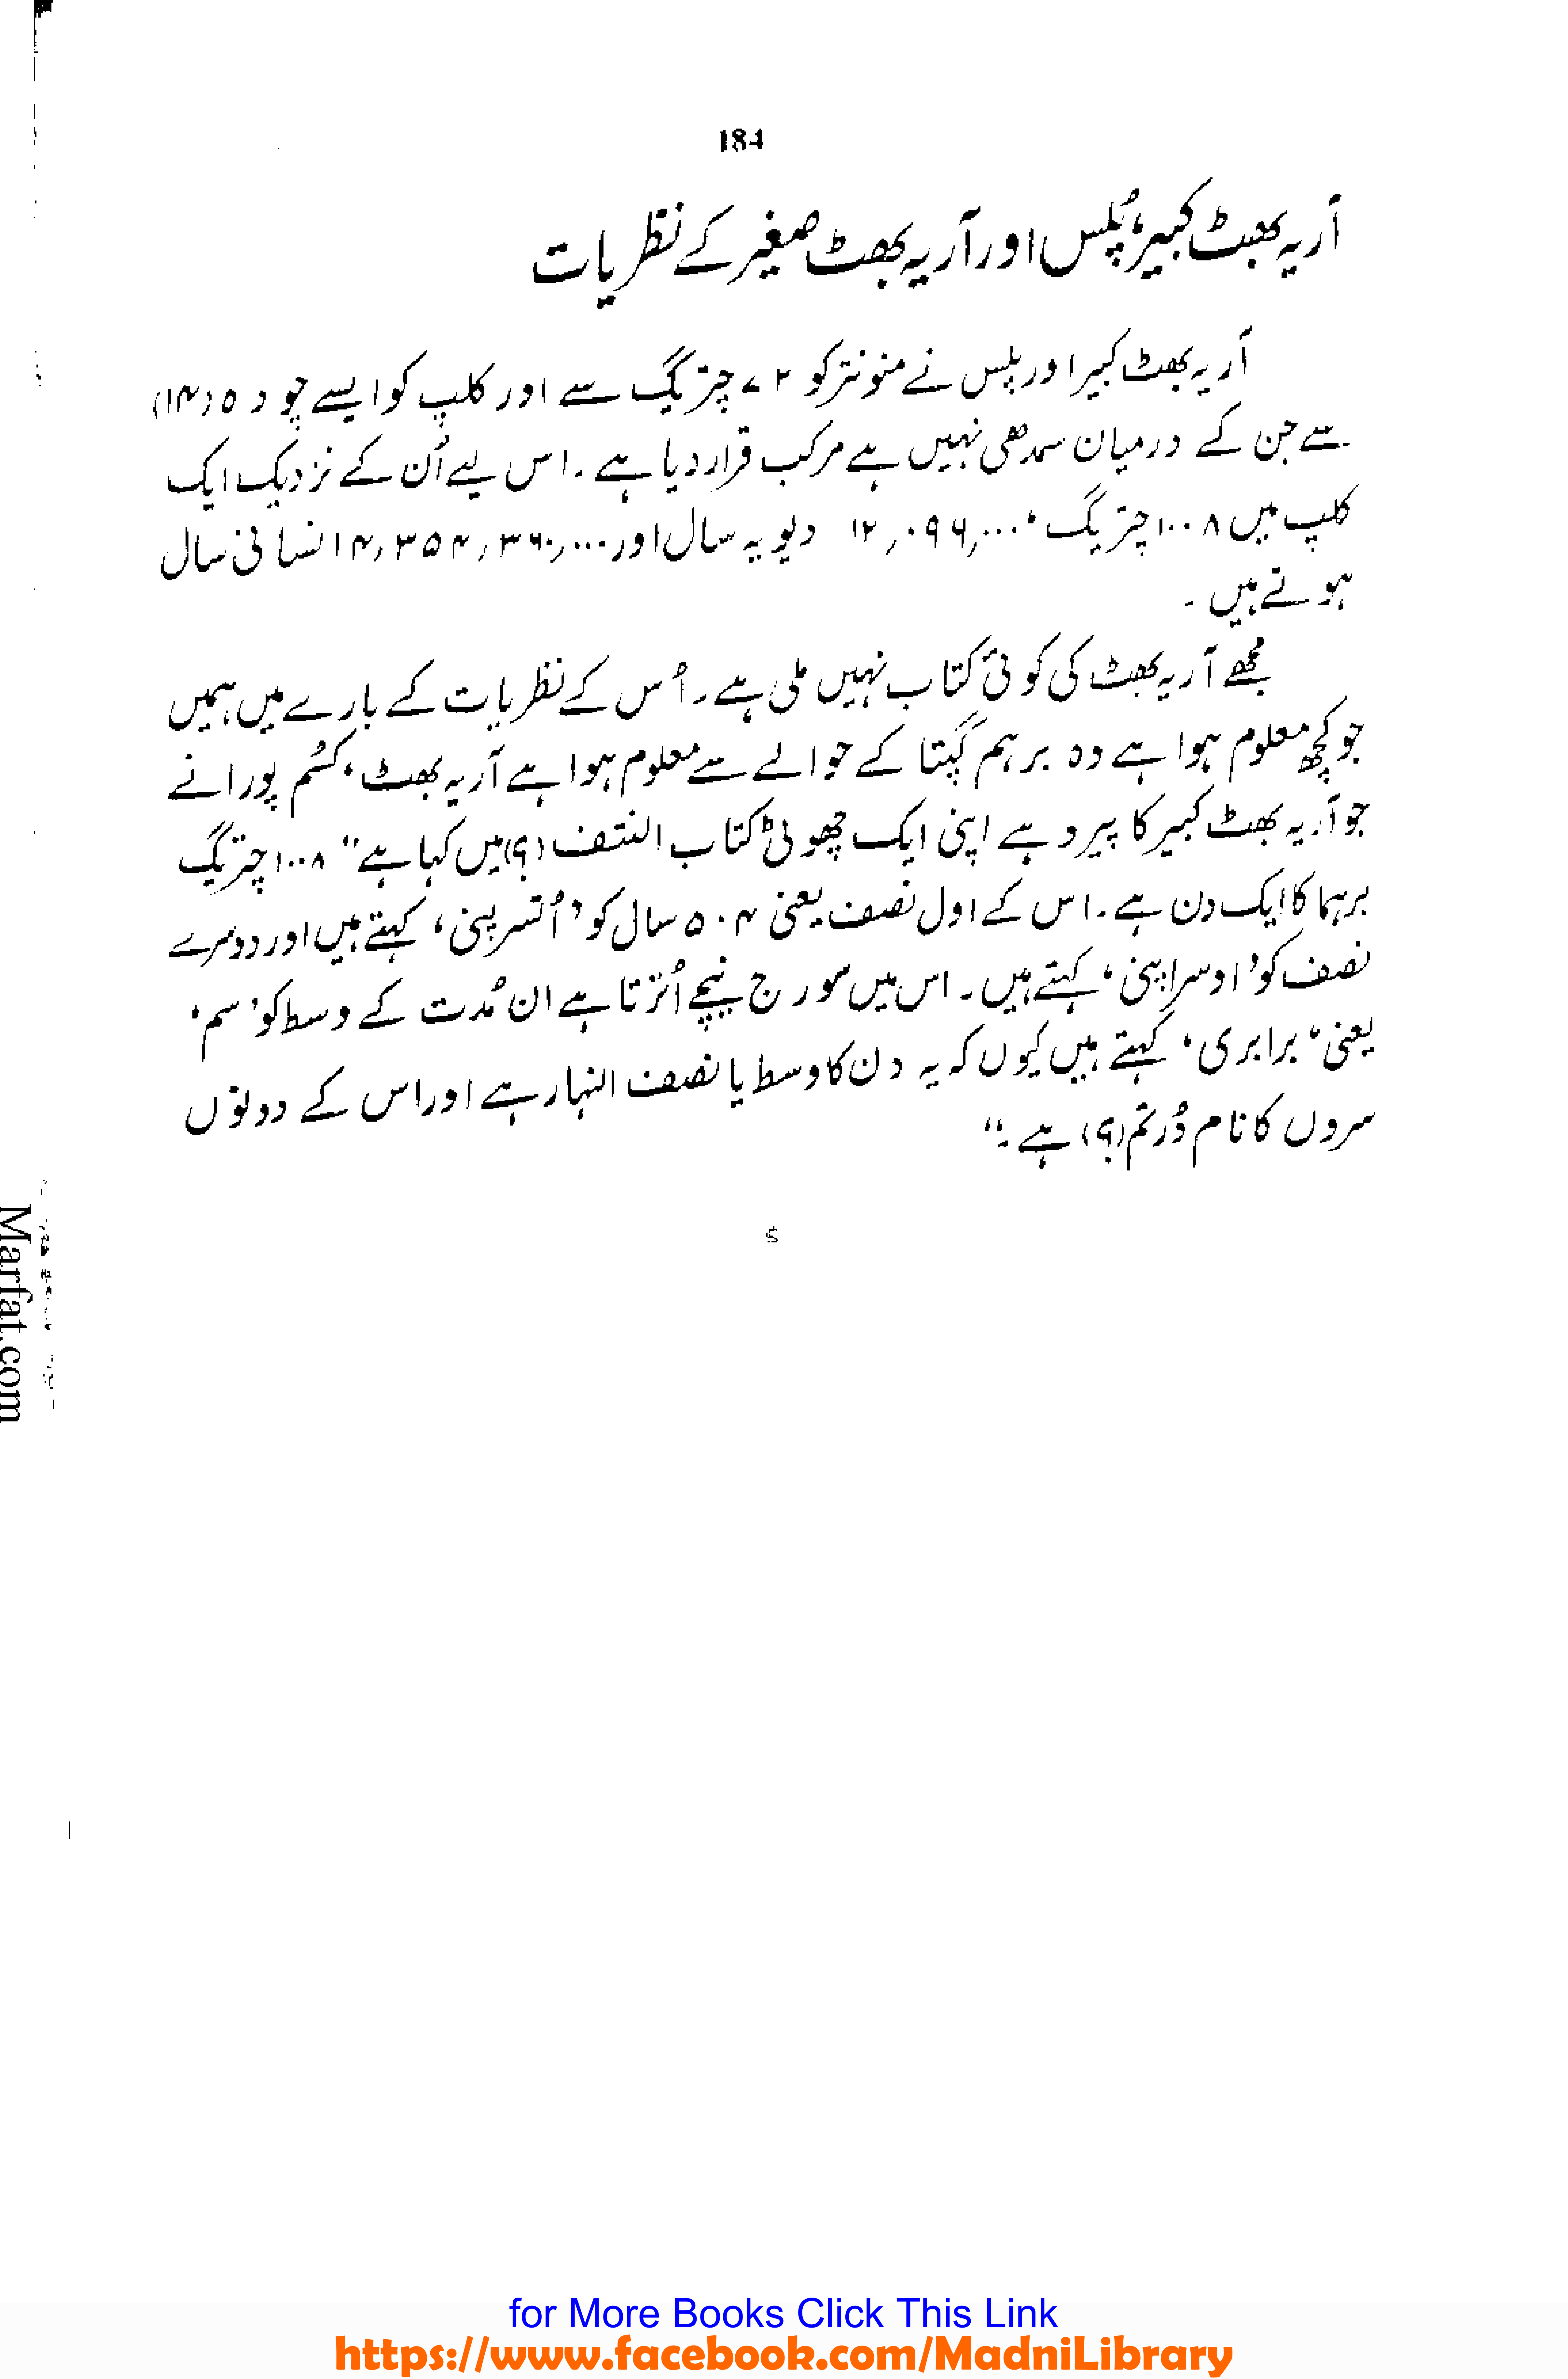 184
آریہ بھٹ کبیر، پُلس اور آریہ بھٹ صغیر کے نظریات
آریہ بھٹ کبیر اور پلس نے منونتر کو ۷۲ چتر یگ سے اور کلپ کو ایسے چودہ (۱۴)
سے جن کے درمیان سمدھی نہیں ہے مرکب قرار دیا ہے۔ اس لیے اُن کے نزدیک ایک
کلپ میں ۱۰۰۸ چتر یگ، ۱۲,۰۹۶,۰۰۰ دیویہ سال اور ۴,۳۵۴,۳۶۰,۰۰۰ انسانی سال
ہوتے ہیں۔
مجھے آریہ بھٹ کی کوئی کتاب نہیں ملی ہے۔ اُس کے نظریات کے بارے میں ہمیں
جو کچھ معلوم ہوا ہے وہ برہم گپتا کے حوالے سے معلوم ہوا ہے آریہ بھٹ، کسُم پورا نے
جو آریہ بھٹ کبیر کا پیرو ہے اپنی ایک چھوٹی کتاب النتف (؟) میں کہا ہے "۱۰۰۸ چتر یگ
برہما کا ایک دن ہے۔ اس کے اول نصف یعنی ۵۰۴ سال کو 'اُتسرپنی' کہتے ہیں اور دوسرے
نصف کو 'اوسراپنی' کہتے ہیں۔ اس میں سورج نیچے اُترتا ہے ان مُدت کے وسط کو 'سم'
یعنی 'برابری' کہتے ہیں کیوں کہ یہ دن کا وسط یا نصف النہار ہے اور اس کے دونوں
سروں کا نام دُرتم (؟) ہے۔"
Marfat.com
for More Books Click This Link
https://www.facebook.com/MadniLibrary